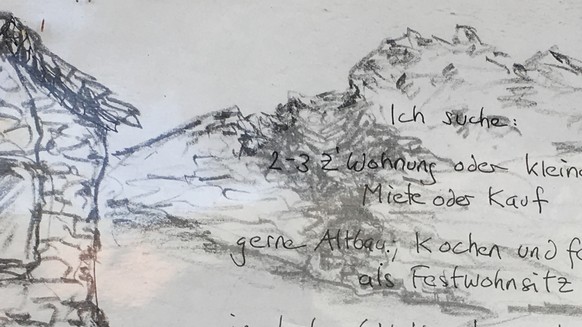 Ich suche:
2-3 Z' Wohnung oder klein
Miete oder Kauf
gerne Altbau; Kochen und
als Festwohnsitz